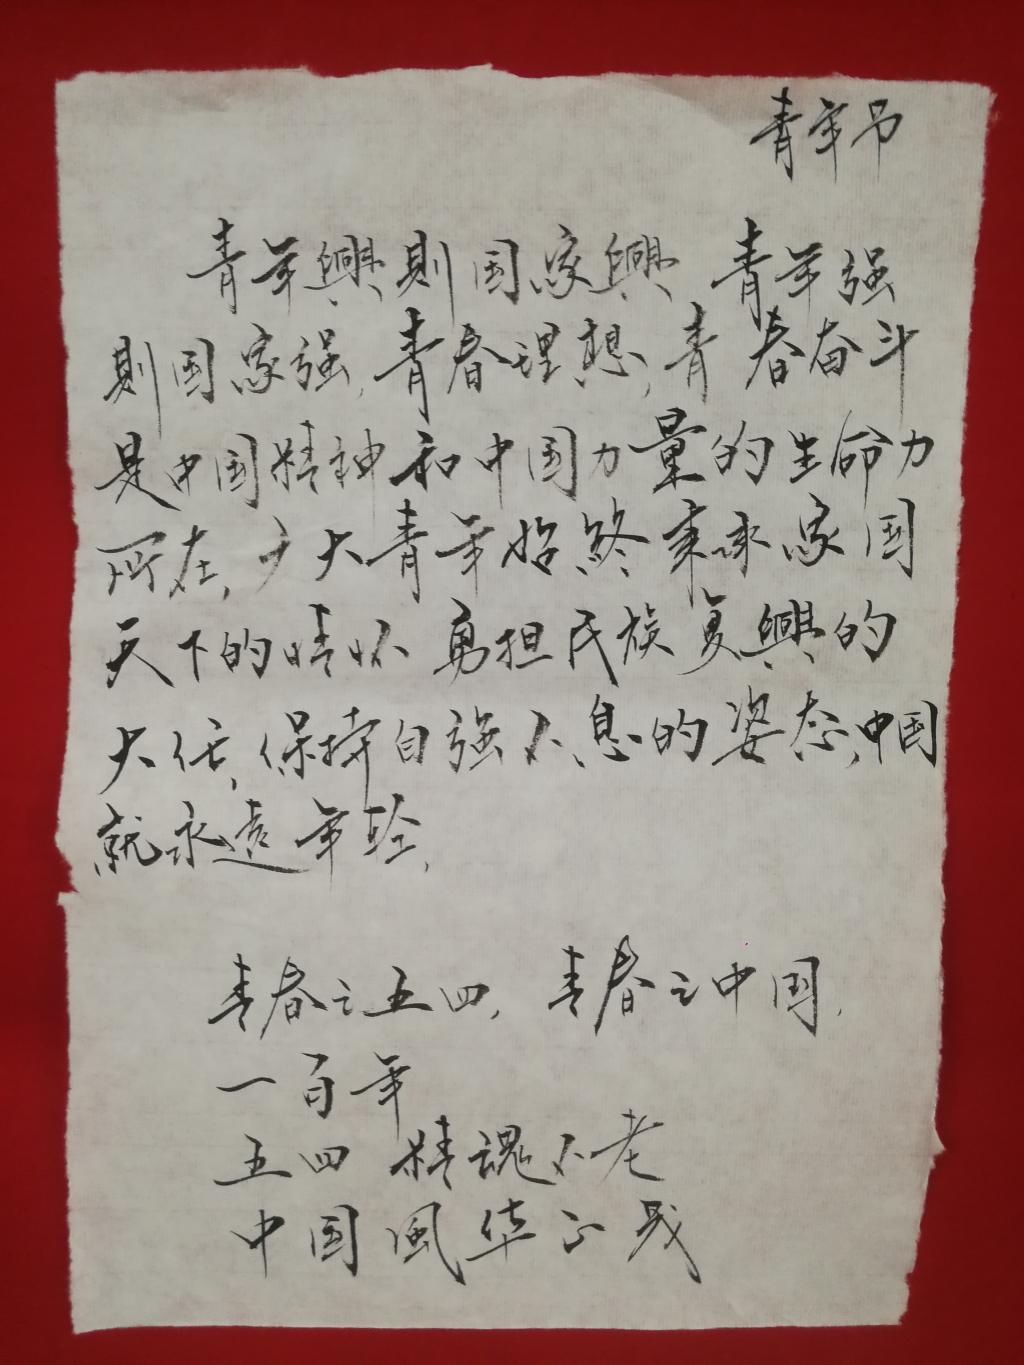 青年节
青年興則国家興 青年强
則国家强,青春理想,青春奋斗
是中国精神和中国力量的生命力
所在,广大青年始終秉承家国
天下的情怀 勇担民族复興的
大任,保持自强不息的姿态,中国
就永遠年轻,
青春之五四,青春之中国,
一百年
五四精魂不老
中国風华正茂